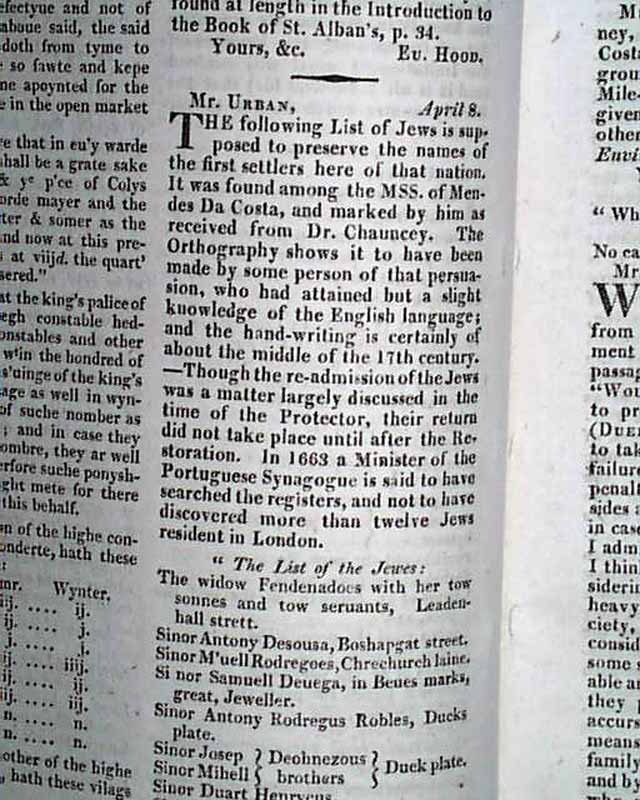 efectyue and not of
aboue said, the said
doth from tyme to
so fawte and kepe
ne apoynted for the
e in the open market
e that in eu'y warde
hall be a grate sake
& yᵉ p'ce of Colys
orde mayer and the
ter & somer as the
nd now at this pre-
at viijd. the quart'
sered."
at the king's palice of
egh constable hed-
onstables and other
w'in the hondred of
s'uinge of the king's
age as well in wyn-
of suche nomber as
; and in case they
ombre, they ar well
erfore suche ponysh-
ght mete for there
this behalf.
n of the highe con-
onderte, hath these
:
mr. Wynter.
ij. .... ij.
ij. .... j.
j. .... j.
ij. .... iiij.
ij. .... ij.
iij. .... ij.
n. .... n.
n. .... n.
other of the highe
hath these vilags
found at length in the Introduction to
the Book of St. Alban's, p. 34.
Yours, &c. Eu. Hood.
Mr. Urban, April 8.
THE following List of Jews is sup-
posed to preserve the names of
the first settlers here of that nation.
It was found among the MSS. of Men-
des Da Costa, and marked by him as
received from Dr. Chauncey. The
Orthography shows it to have been
made by some person of that persua-
sion, who had attained but a slight
knowledge of the English language;
and the hand-writing is certainly of
about the middle of the 17th century.
—Though the re-admission of the Jews
was a matter largely discussed in the
time of the Protector, their return
did not take place until after the Re-
storation. In 1663 a Minister of the
Portuguese Synagogue is said to have
searched the registers, and not to have
discovered more than twelve Jews
resident in London.
"The List of the Jewes:
The widow Fendenadoes with her tow
sonnes and tow seruants, Leaden-
hall strett.
Sinor Antony Desousa, Boshapgat street.
Sinor M'uell Rodregoes, Chrechurch laine.
Si nor Samuell Deuega, in Beues marks,
great, Jeweller.
Sinor Antony Rodregus Robles, Ducks
plate.
Sinor Josep } Deohnezous } Duck plate.
Sinor Mihell { brothers {
Sinor Duart Henrycus
M
ney,
Costa
grou
Mile-
given
other
Envi
"Wh
No ca
Mr
W
from
ment
passag
"Wou
to pr
(Duer
to tak
failure
penalt
sides a
in case
I adm
I think
siderin
heavy
ciety,
consid
some s
able an
they p
accurs
means
family
and by